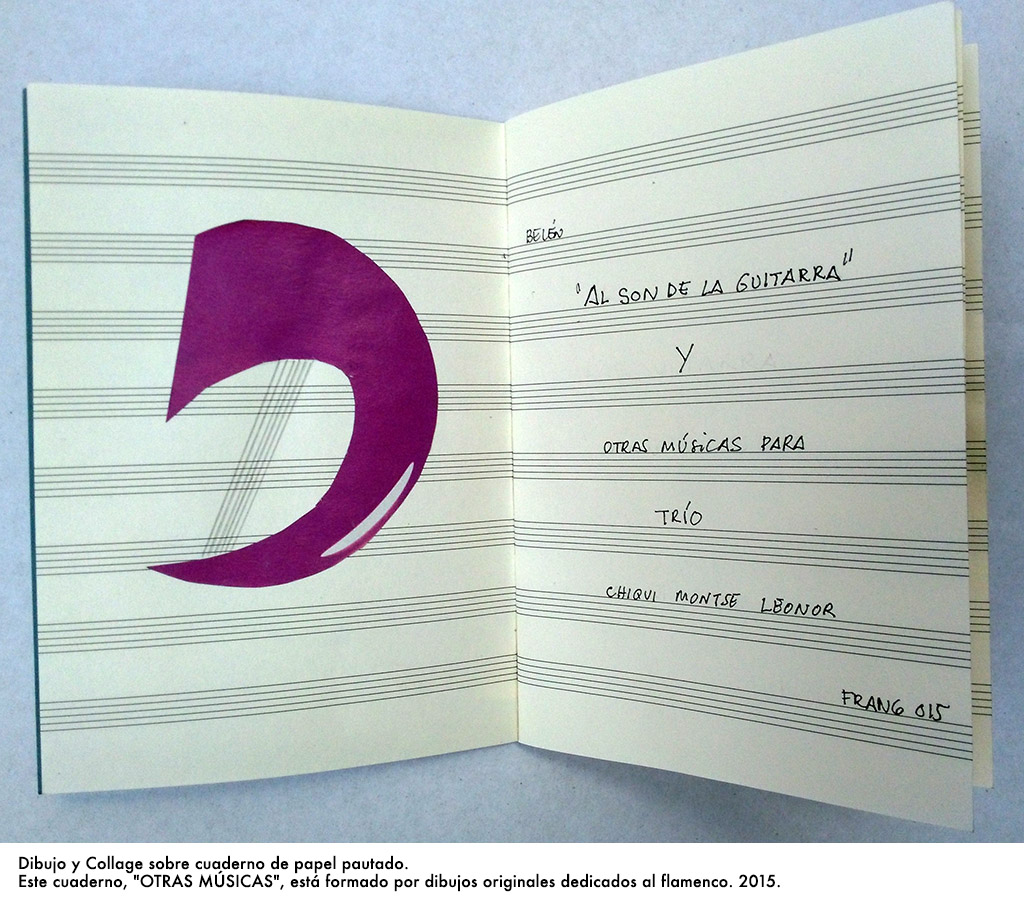 BELÉN
"AL SON DE LA GUITARRA"
Y
OTRAS MÚSiCAS PARA
TRÍO
CHIQUI MONTSE LEONOR
FRANG 015
Dibujo y Collage sobre cuaderno de papel pautado.
Este cuaderno, "OTRAS MÚSICAS", está formado por dibujos originales dedicados al flamenco. 2015.